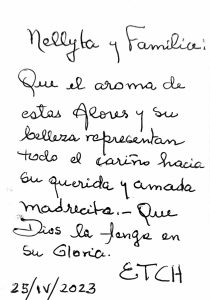 Nellyta y Familia:
Que el aroma de
estas flores y su
belleza representan
todo el cariño hacia
su querida y amada
madrecita.- Que
Dios la tenga en
su Gloria.
ETCH
25/IV/2023